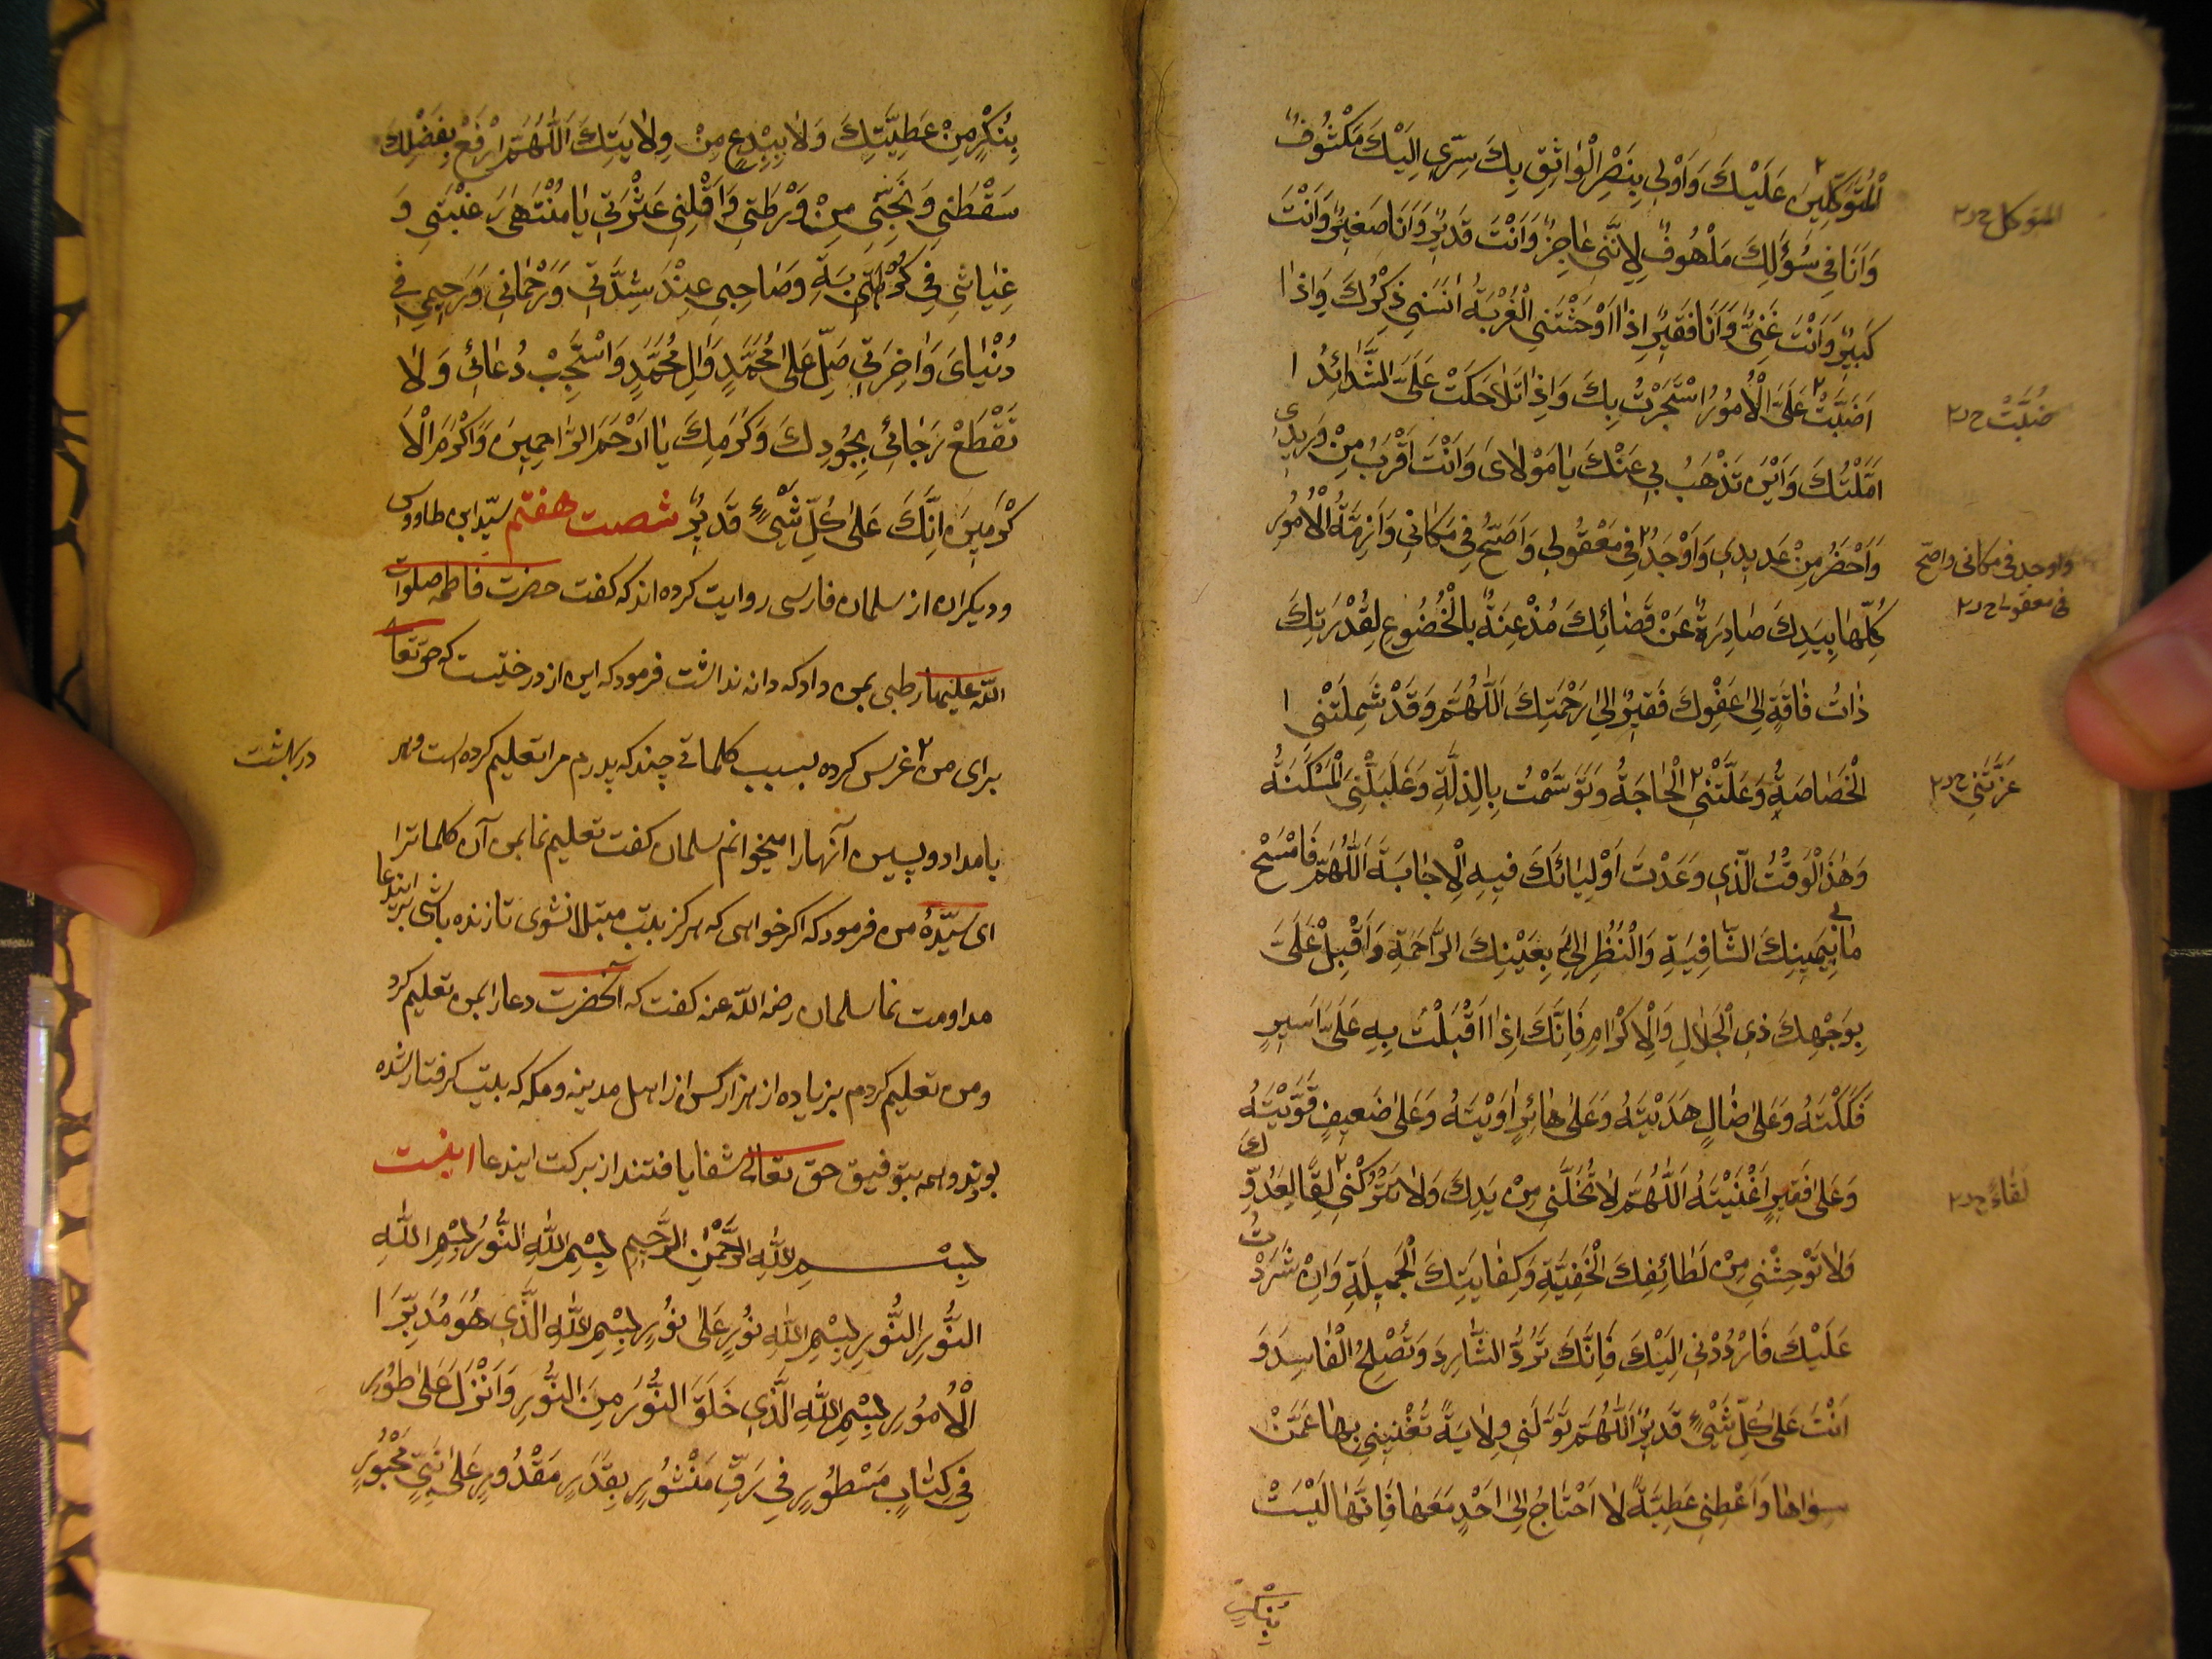 الْمُتَوَكِّلِينَ عَلَيْكَ وَاَوْلٰى بِنَصْرِ الْوٰاثِقِ بِكَ سِرّى اِلَيْكَ مَكْشُوفٌ
المتوكل ح ر٢
وَاَنَا فى سُؤٰلِكَ مَلْهُوفٌ لِاِنَّنى عٰاجِزٌ وَاَنْتَ قَدِيرٌ وَاَنَا صَغِيرٌ وَاَنْتَ
كَبِيرٌ وَاَنْتَ غَنِىٌّ وَاَنَا فَقِيرٌ اِذٰا اَوْحَشَتْنِى الْغُرْبَةُ اٰنَسَنِى ذِكْرُكَ وَاِذٰا
اَصَبَّتْ عَلَىَّ الْاُمُورُ اسْتَجَرْتُ بِكَ وَاِذٰا تَلٰاحَكَتْ عَلَىَّ الشَّدٰائِدُ ا
صُبَّتْ ح ر٢
اَمَّلْتُكَ وَاَيْنَ تَذْهَبُ بى عَنْكَ يٰا مَوْلٰاىَ وَاَنْتَ اَقْرَبُ مِنْ وَرِيدى
وَاَحْضَرُ مِنْ عَدِيدى وَاَوْجَدُ فى مَعْقُولى وَاَصَحُّ فى مَكٰانى وَاَزِمَّةُ الْاُمُورِ
واوجد فى مكانى واصحّ
فى معقولى ح ر٢
كُلِّهٰا بِيَدِكَ صٰادِرَةٌ عَنْ قَضٰائِكَ مُذْعِنَةٌ بِالْخُضُوعِ لِقُدْرَتِكَ
ذٰاتُ فٰاقَةٍ اِلٰى عَفْوِكَ فَقِيرٌ اِلٰى رَحْمَتِكَ اَللّٰهُمَّ وَقَدْ شَمِلَتْنِى ا
الْخَصٰاصَةُ وَعَلَّتْنِى الْحٰاجَةُ وَتَوَسَّمْتُ بِالذِّلَّةِ وَغَلَبَتْنِى الْمَسْكَنَةُ
عَرَّتَنِى ح ر٢
وَهٰذَا الْوَقْتُ الَّذى وَعَدْتَ اَوْلِيٰائَكَ فيهِ الْاِجٰابَةَ اَللّٰهُمَّ فَامْسَحْ
مٰا بى بِيَمِينِكَ الشّٰافِيَةِ وَانْظُرْ اِلَىَّ بِعَيْنِكَ الرّٰاحِمَةِ وَاَقْبِلْ عَلَىَّ
بِوَجْهِكَ ذِى الْجَلٰالِ وَالْاِكْرٰامِ فَاِنَّكَ اِذٰا اَقْبَلْتَ بِهِ عَلٰى اَسِيرٍ
فَكَكْتَهُ وَعَلٰى ضٰالٍّ هَدَيْتَهُ وَعَلٰى حٰائِرٍ اٰوَيْتَهُ وَعَلٰى ضَعِيفٍ قَوَّيْتَهُ
وَعَلٰى فَقِيرٍ اَغْنَيْتَهُ اَللّٰهُمَّ لٰا تُخَلِّنى مِنْ يَدِكَ وَلٰا تَتْرُكْنى لِقًا لِعَدُوِّكَ
لقاءً ح ر٢
وَلٰا تُوحِشْنى مِنْ لَطٰائِفِكَ الْخَفِيَّةِ وَكِفٰايَتِكَ الْجَمِيلَةِ وَاِنْ شَرَدْتُ
عَلَيْكَ فَارْدُدْنى اِلَيْكَ فَاِنَّكَ تَرُدُّ الشّٰارِدَ وَتُصْلِحُ الْفٰاسِدَ وَ
اَنْتَ عَلٰى كُلِّ شَىْءٍ قَدِيرٌ اَللّٰهُمَّ تَوَلَّنى وِلٰايَةً تُغْنِينى بِهٰا عَمَّنْ
سِوٰاهٰا وَاَعْطِنى عَطِيَّةً لٰا اَحْتٰاجُ اِلٰى اَحَدٍ مَعَهٰا فَاِنَّهٰا لَيْسَتْ
بِنُكْرٍ
بِنُكْرٍ مِنْ عَطِيَّتِكَ وَلٰا بِبِدْعٍ مِنْ وِلٰايَتِكَ اَللّٰهُمَّ ارْفَعْ بِفَضْلِكَ
سَقْطَتى وَنَجِّنى مِنْ وَرْطَتى وَاَقِلْنى عَثْرَتى يٰا مُنْتَهىٰ رَغْبَتى وَ
غِيٰاثى فى كُرْبَتى وَصٰاحِبى عِنْدَ شِدَّتى وَرَحْمٰانى وَرَحِيمى فى
دُنْيٰاىَ وَاٰخِرَتى صَلِّ عَلٰى مُحَمَّدٍ وَاٰلِ مُحَمَّدٍ وَاسْتَجِبْ دُعٰائى وَلٰا
تَقْطَعْ رَجٰائى بِجُودِكَ وَكَرَمِكَ يٰا اَرْحَمَ الرّٰاحِمِينَ وَاَكْرَمَ الْاَ
كْرَمِينَ اِنَّكَ عَلٰى كُلِّ شَىْءٍ قَدِيرٌ شصت هفتم سيّد ابن طاووس
وديكران از سلمان فارسى روايت كرده اند كه كفت حضرت فاطمه صلوات
اللّه عليها رطبى بمن داد كه دانه نداشت فرمود كه اين از درختيست كه حق تعا
براى من غرس كرده بسبب كلماتى چند كه پدرم مرا تعليم كرده است وهر
در بهشت
بامداد وپسين آنها را ميخوانم سلمان كفت تعليم نما بمن آن كلماترا
اى سيّدهٔ من فرمود كه اكر خواهى كه هركز بتب مبتلا نشوى تا زنده باشى بر ايندعا
مداومت نما سلمان رضى اللّه عنه كفت كه آنحضرت دعا را بمن تعليم كرد
ومن تعليم كردم بزياده از هزار كس از اهل مدينه ومكه كه بتب كرفتار شده
بودند وهمه بتوفيق حق تعالى شفا يافتند از بركت ايندعا اينست
بِسْمِ اللّٰهِ الرَّحْمٰنِ الرَّحِيمِ بِسْمِ اللّٰهِ النُّورُ بِسْمِ اللّٰهِ
النُّورِ النُّورِ بِسْمِ اللّٰهِ نُورٍ عَلٰى نُورٍ بِسْمِ اللّٰهِ الَّذى هُوَ مُدَبِّرُ ا
الْاُمُورِ بِسْمِ اللّٰهِ الَّذى خَلَقَ النُّورَ مِنَ النُّورِ وَاَنْزَلَ عَلٰى طُورِ
فى كِتٰابٍ مَسْطُورٍ فى رَقٍّ مَنْشُورٍ بِقَدَرٍ مَقْدُورٍ عَلٰى نَبِىٍّ مَحْبُورٍ